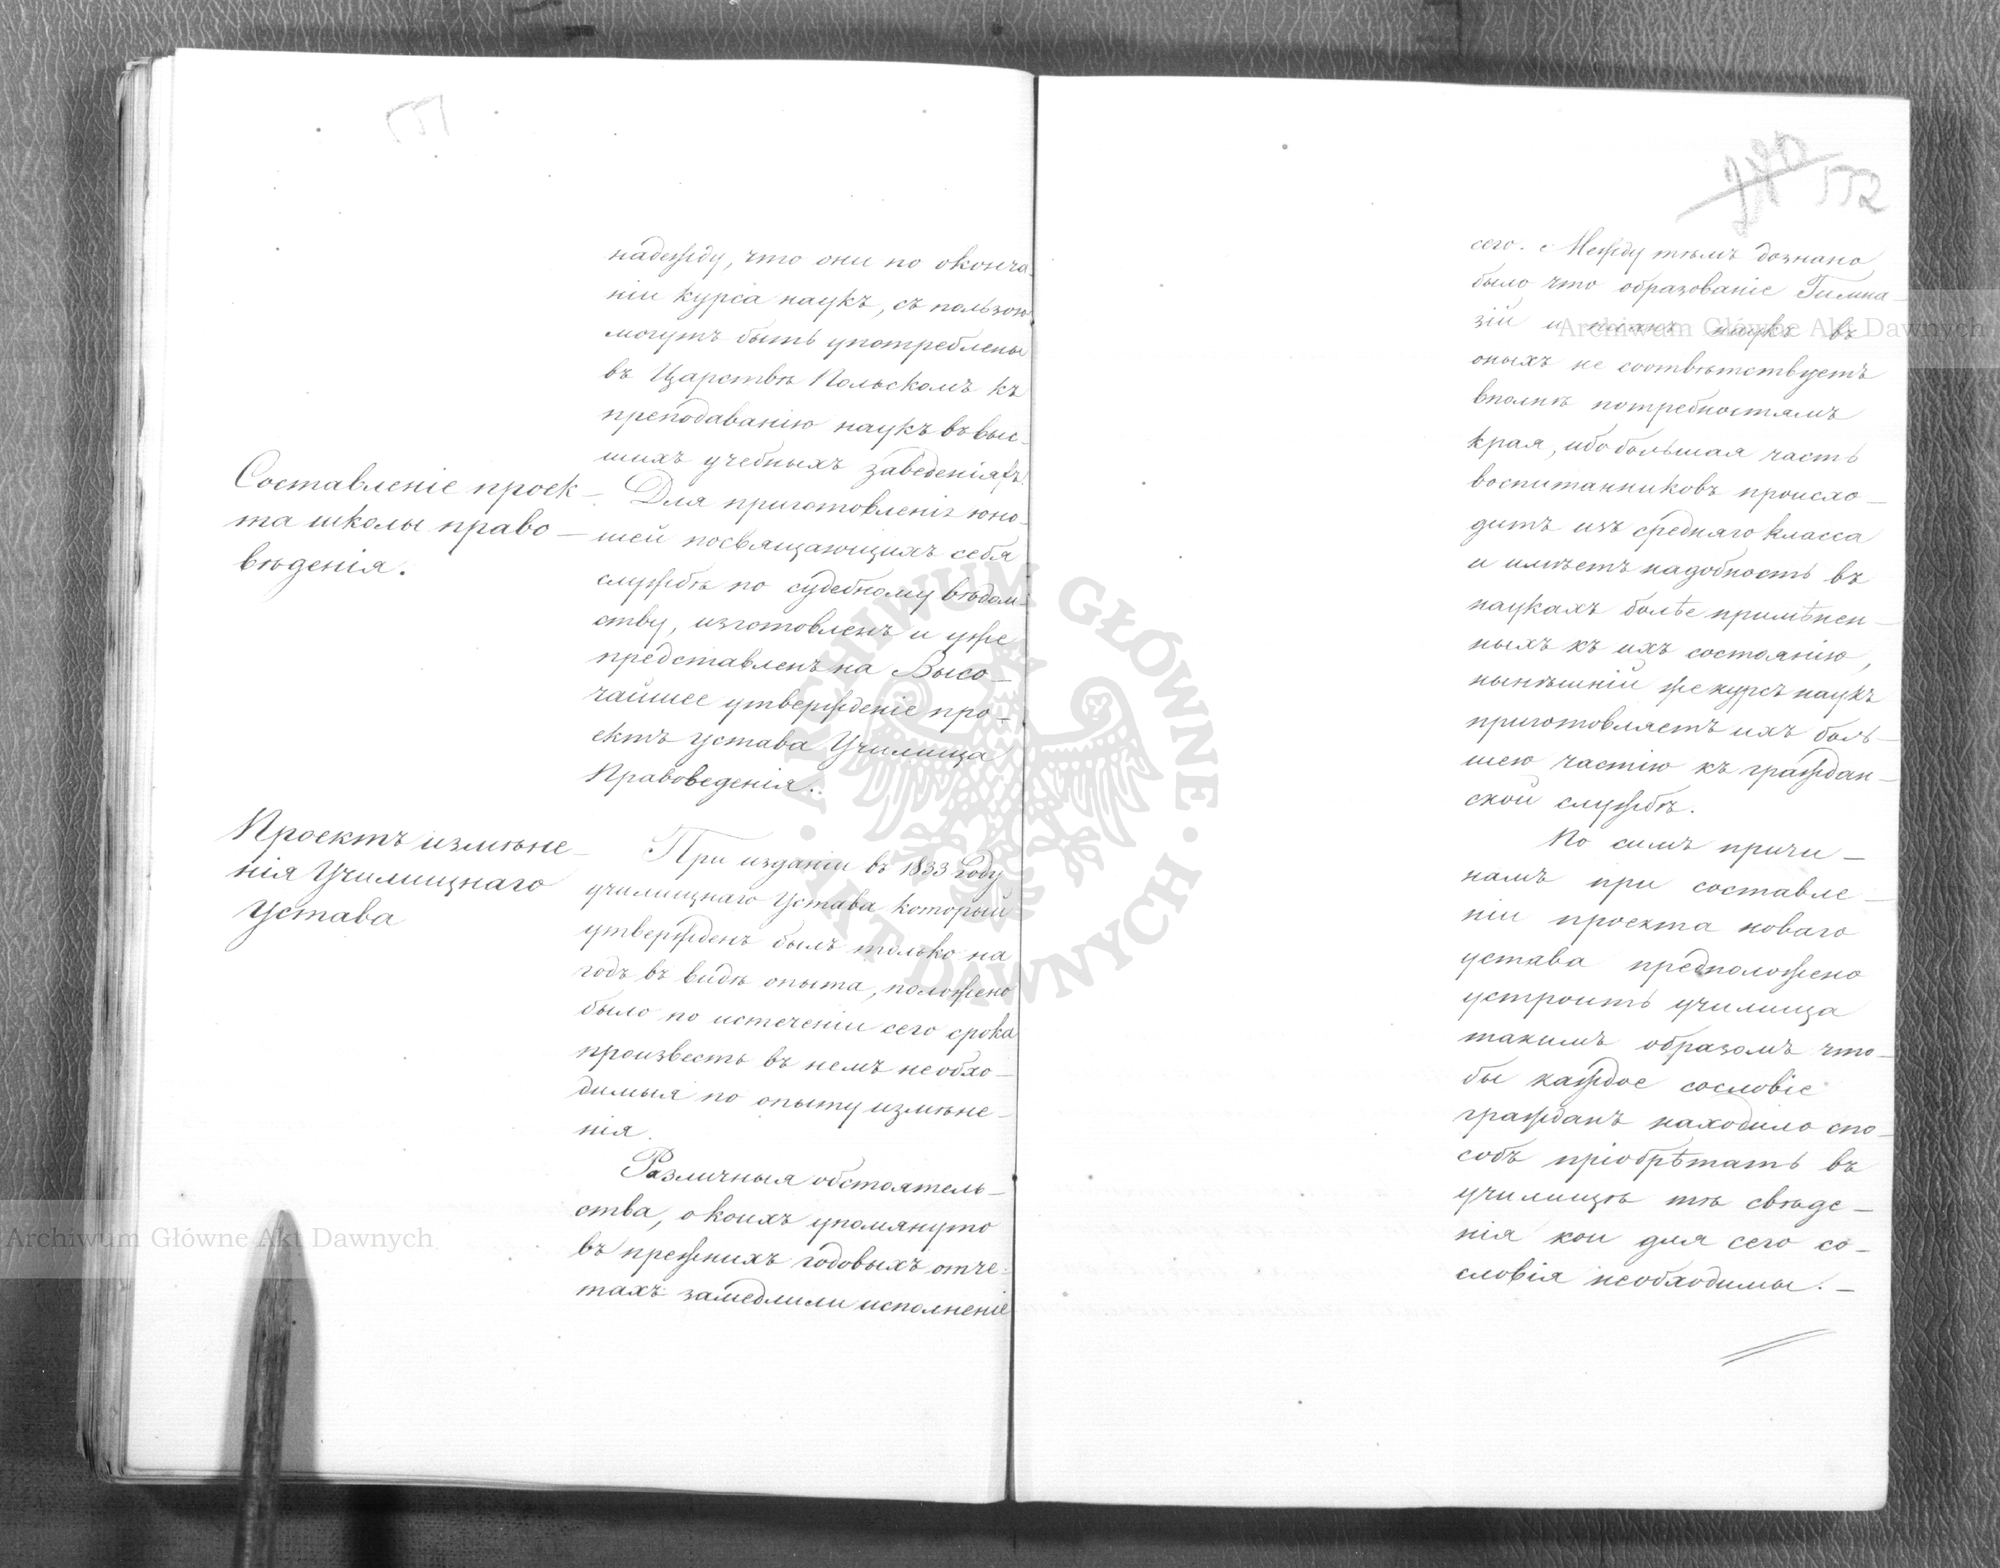 надежду, что они по оконча-
ніи курса наукъ, съ пользою
могутъ быть употреблены
въ Царствѣ Польскомъ къ
преподаванію наукъ въ выс-
шихъ учебныхъ заведеніяхъ.
Составленіе проек-
та школы право-
вѣденія.
Для приготовленія юно-
шей посвящающихъ себя
службѣ по судебному вѣдом-
ству, изготовленъ и уже
представленъ на Высо-
чайшее утвержденіе про-
ектъ устава Училища
Правоведенія.
Проектъ измѣне-
нія Училищнаго
Устава
При изданіи въ 1833 Году
училищнаго Устава который
утвержденъ былъ только на
годъ въ видѣ опыта, положено
было по истеченіи сего срока
произвесть въ немъ необхо-
димыя по опыту измѣне-
нія.
Различныя обстоятель-
ства, о коихъ упомянуто
въ прежнихъ годовыхъ отче-
тахъ замедлили исполненіе
270 152
сего. Между тѣмъ дознано
было что образованіе Гимна-
зій и планъ наукъ въ
оныхъ не соотвѣтствуетъ
вполнѣ потребностямъ
края, ибо большая часть
воспитанниковъ происхо-
дитъ изъ средняго класса
и имѣетъ надобность въ
наукахъ болѣе примѣнен-
ныхъ къ ихъ состоянію,
нынѣшній же курсъ наукъ
приготовляетъ ихъ боль-
шею частію къ граждан-
ской службѣ.
По симъ причи-
намъ при составле-
ніи проекта новаго
устава предположено
устроить училища
такимъ образомъ что-
бы каждое сословіе
гражданъ находило спо-
собъ пріобрѣтать въ
училищѣ тѣ свѣде-
нія кои для сего со-
словія необходимы. -
Archiwum Główne Akt Dawnych
Archiwum Główne Akt Dawnych
ARCHIWUM GŁÓWNE
AKT DAWNYCH